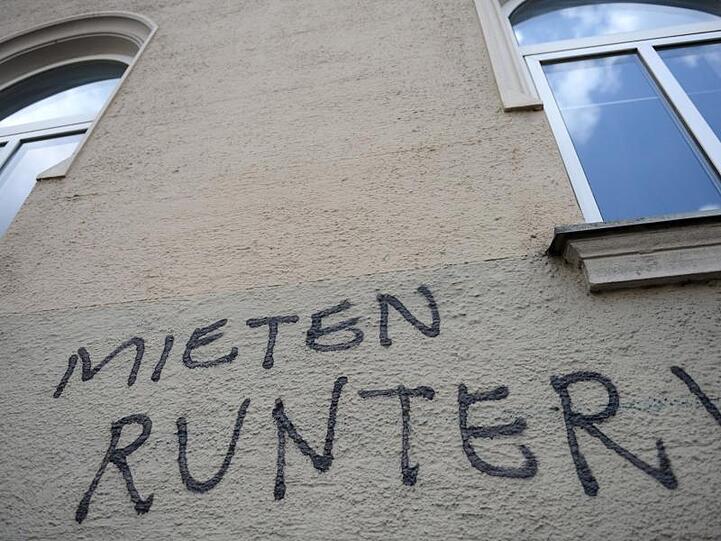 MIETEN
RUNTER